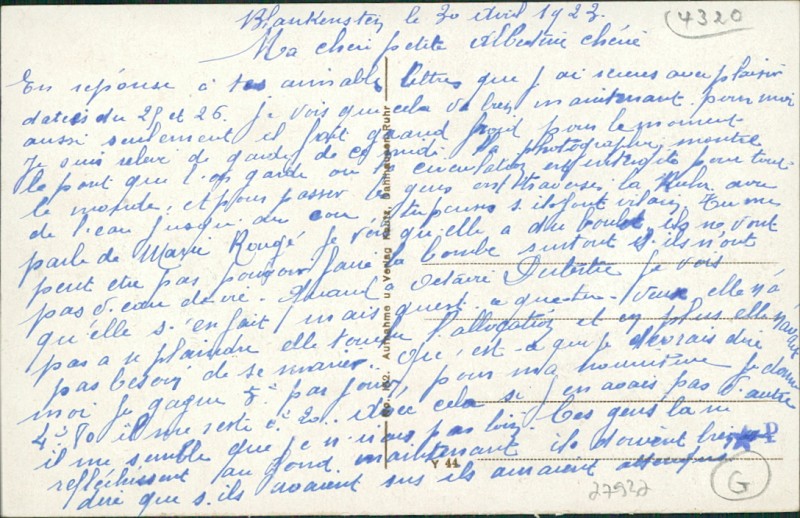 Blankenstein le 30 Avril 1923.
4320
Ma cheri petite Albertine chérie
En reponse à tes aimables lettres que j ai recues avec plaisir
datees du 25 et 26. Je vois que cela va bien maintenant pour moi
aussi seulement il fait grand froid pour le moment
Je suis relevé de garde de ce midi la photographie montre
le pont que l'on garde ou la circulation est interdite pour tout
le monde. et pour passer les gens ont traversés la Ruhr avec
de l'eau jusqu'au cou, tu penses s.ils sont vilain. Tu me
parle de Marie Rouge je vois qu'elle a du boulot, ils ne vont
peut etre pas pouvoir faire la bombe surtout s. ils n'ont
pas d.eau de vie. Quand a Octavie Dubertre je vois
qu'elle s.'en fait mais quest. a que tu veux elle n'a
pas a se plaindre elle touche l'allocation et en plus elle n'avait
pas besoin de se marier. Qu'est-a que je devrais dire
moi je gagne 5° par jour, pour ma nourriture je donne
4° 80 il me reste 0° 20. avec cela si j'en avais pas d'autre
il me semble que je n'irais pas loin. Ces gens la ne
reflechissent au fond maintenant ils doivent bien
dire que s.ils avaient sus ils auraient attendus
No. 162. Aufnahme u. Verlag Dahlhausen Ruhr
Y 44
27927
G